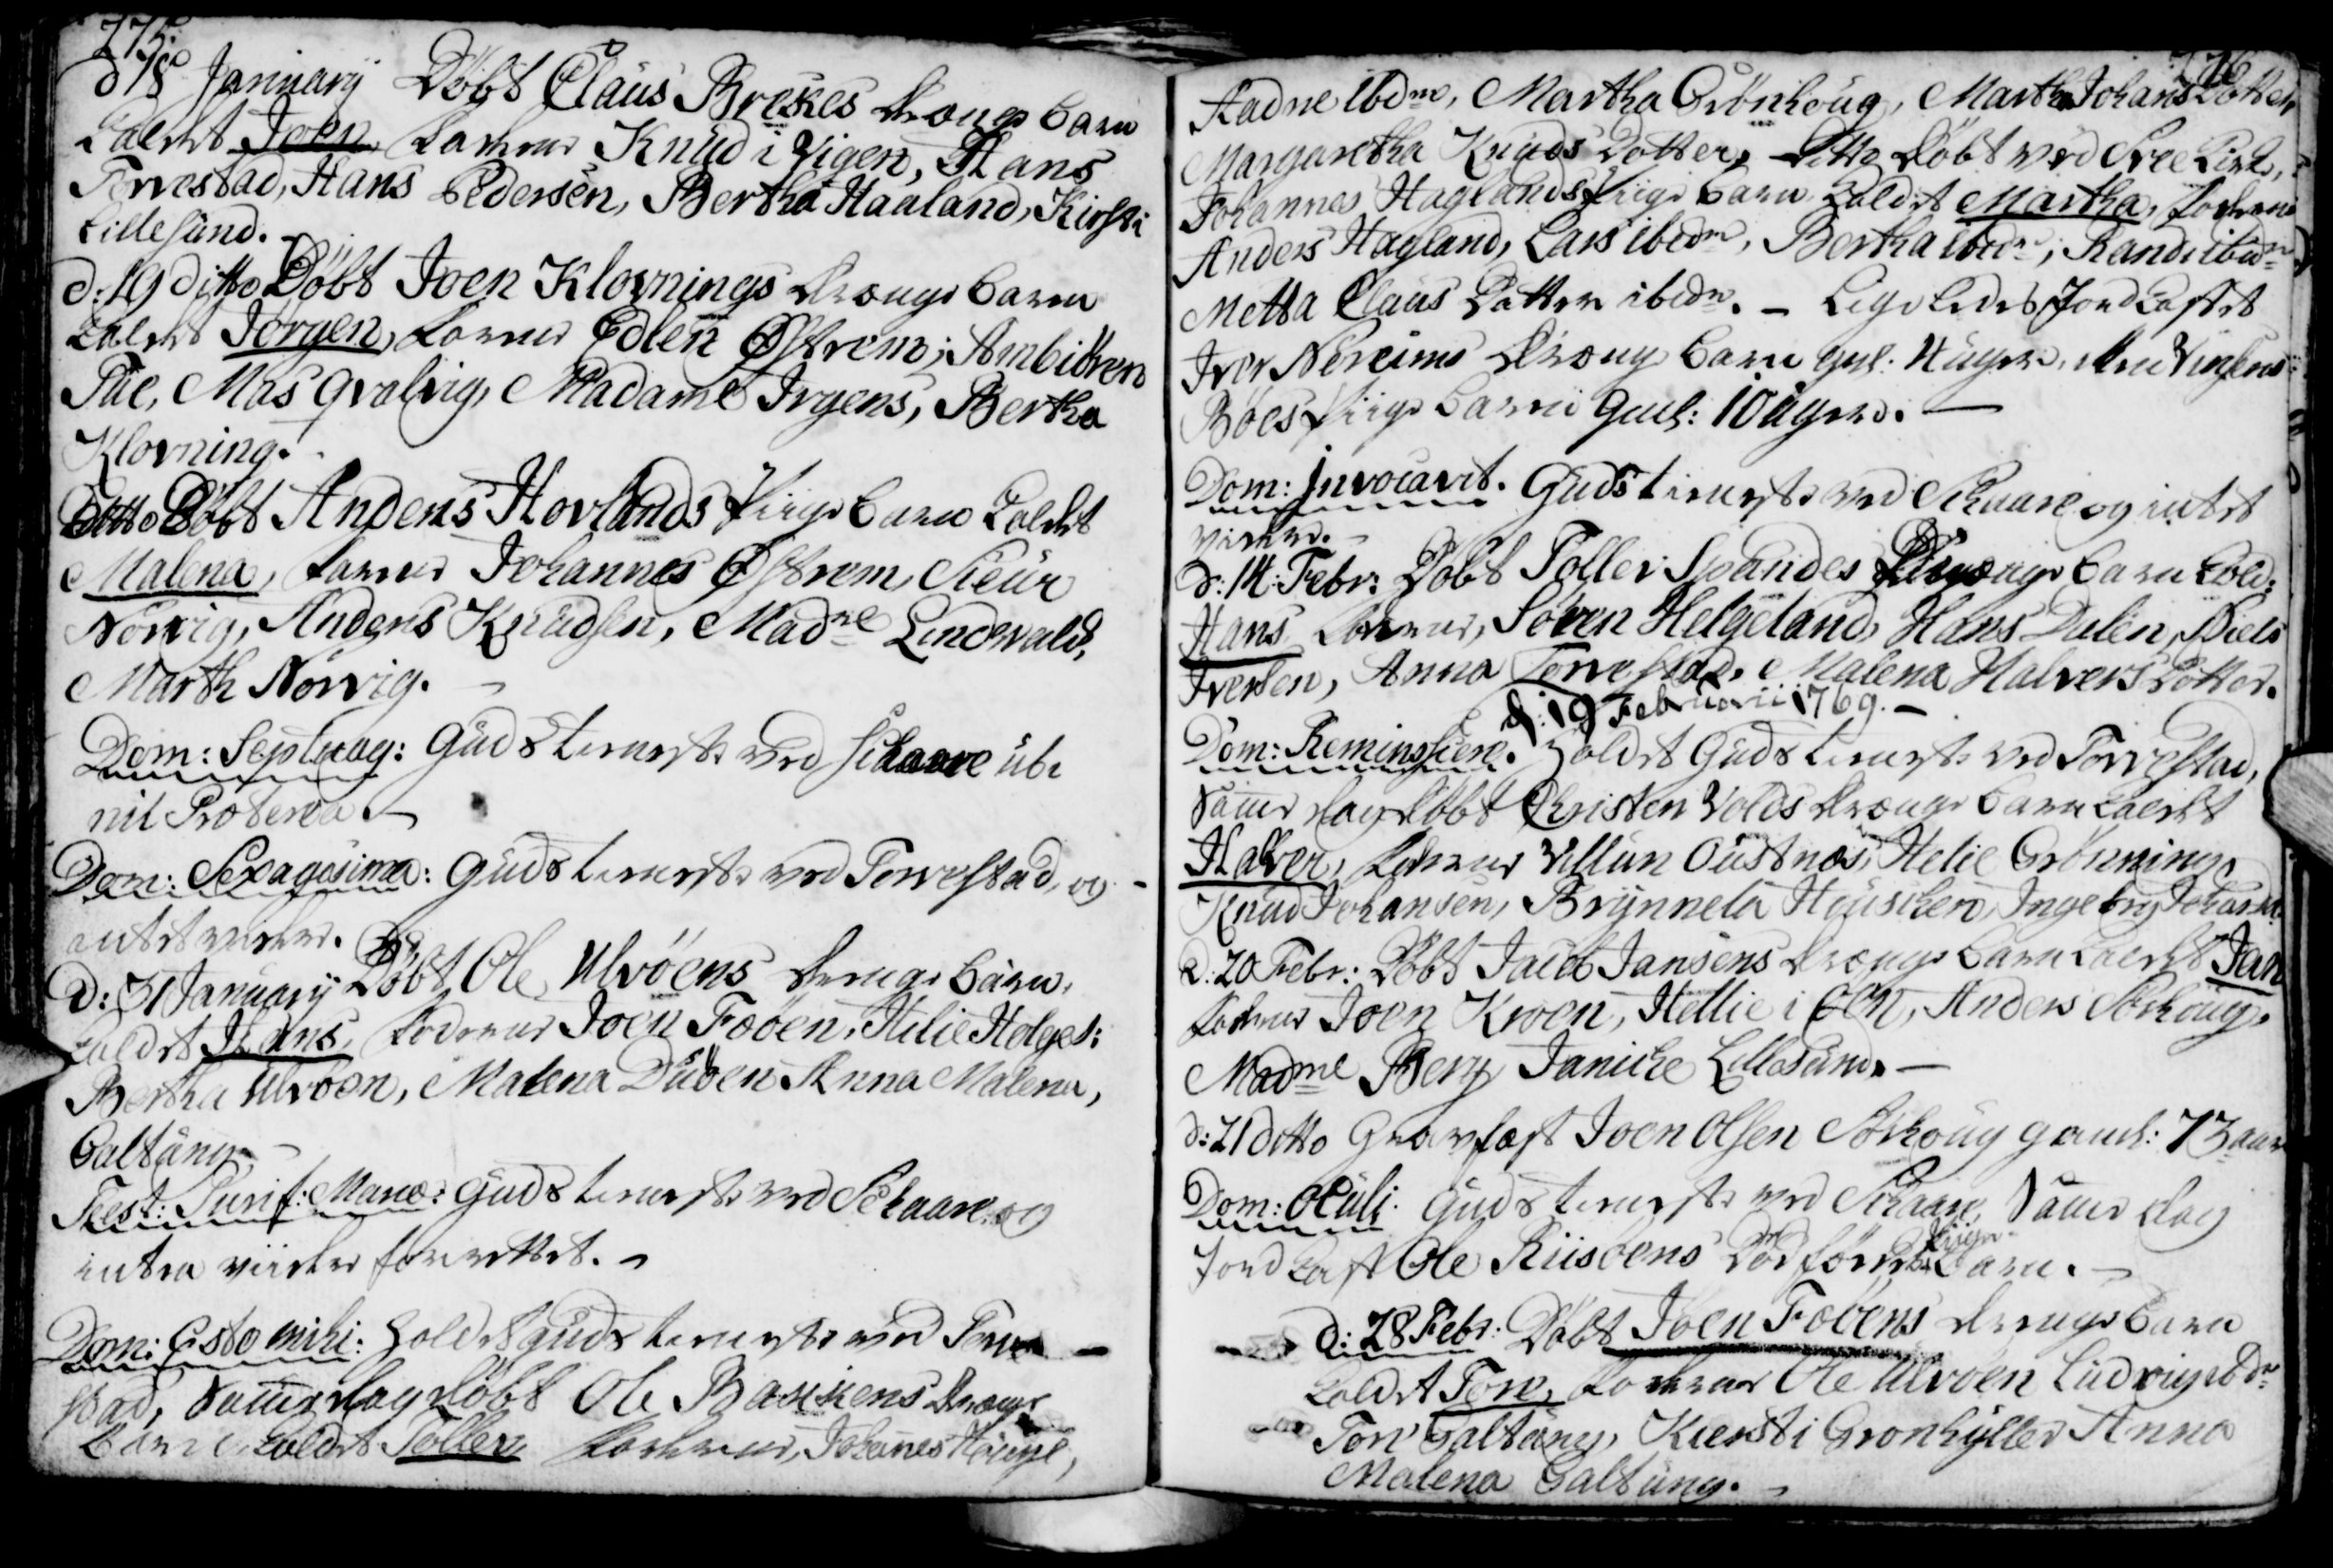 275.
d 18 Januarij Döbt Claus Brekes drænge barn
kaldet Joen, Faddere Knud i Vigen, Hans
Torvestad, Hans Pedersen, Bertha Haaland, Kirsti
Lillesund. –
d: 19 ditto Döbt Joen Klovnings drænge barn
kaldet Jörgen, Fadere Edlen Østrem, Ambiörn
Mas Qvalvig, Madame Irgens, Bertha
Klovning.
Ditto Döbt Anders Hovlands Piige barn kaldet
Malena, Fadere Johannes Østrem, Sieur
Nörvig, Anders Knudsen, Madme Lindevald,
Marth Nörvig. –
Dom: Septuag: Guds tieneste ved Schaare ubi
nil Proterea. –
Dom: Sexagesima: Guds tieneste ved Torvestad, og –
intet viidere.
D: 31 Januarij Döbt Ole Ulvöens drenge barn,
kaldet Hans, Faddere Joen Fæöen, Helie Helges:
Bertha Ulvöen, Malena Anna Malena,
Galtung –
Fest: Purif: Mariæ: Guds tieneste ved Schaare og
intet viidere forrettet. –
Dom: Esto mihi: holdet Guds tieneste ved Torve –
stad, samme dag döbt Ole Bakkens drænge
barn kaldet Toller, Faddere, Johannes Houge,
276
Aadne ibdm, Martha Grönhoug, Martha Johans Dotter
Margaretha Knuds Dotter, dette Döbt ved Kirke,
Johannes Haglands Piige barn kaldet Martha, Faddere
Anders Hagland, Lars ibdm, Bertha ibdm, Randi ibdm
Metta Claus Datter ibdm. – Ligeledes Jord kastet
Iver Nereims dræng barn gml: Uger,
Böes Piige barn Gml: 10 uger. –
Dom: Invocavit. Guds tieneste ved Schaare og intet
videre. –
d: 14 Febr: Döbt Toller Spandes Drænge barn kald:
Hans, Faddere, Sören Helgeland, Hans Dulen, Niels
Iversen, Anna Torvestad, Malena Halvers Dotter.
d: 19 Februarii 1769. –
Dom: Reminiscere. Holdet Guds tieneste ved Torvestad,
samme dag döbt Christen Volds drænge barn kaldet
Halver, Faddere Villum Oustnæs, Helie Grönning,
Knud Johansen, Brynnela Houschen, Ingebrg
d: 20 Febr: Döbt Jacob Jansens drænge barn kaldet Jan
Faddere Joen Kroen, Hellie i Öen, Anders Sörhoug,
Madme Berg, Janicke Lillesund. –
d: 21 ditto Gravfæst Joen Olsen Sörhoug gaml: 73 aar
Dom: Oculi. Guds tieneste ved Schaare, samme dag
Piige
Jord kast Ole Riisöens dödföde barn. –
d: 28 Febr: Döbt Joen Fööens drenge barn
kaldet Tore, Faddere Ole Ulvöen Ludvig ibdm
Tore Galtung, Kiersti Grönhyller Anna
Malena Galtung. –